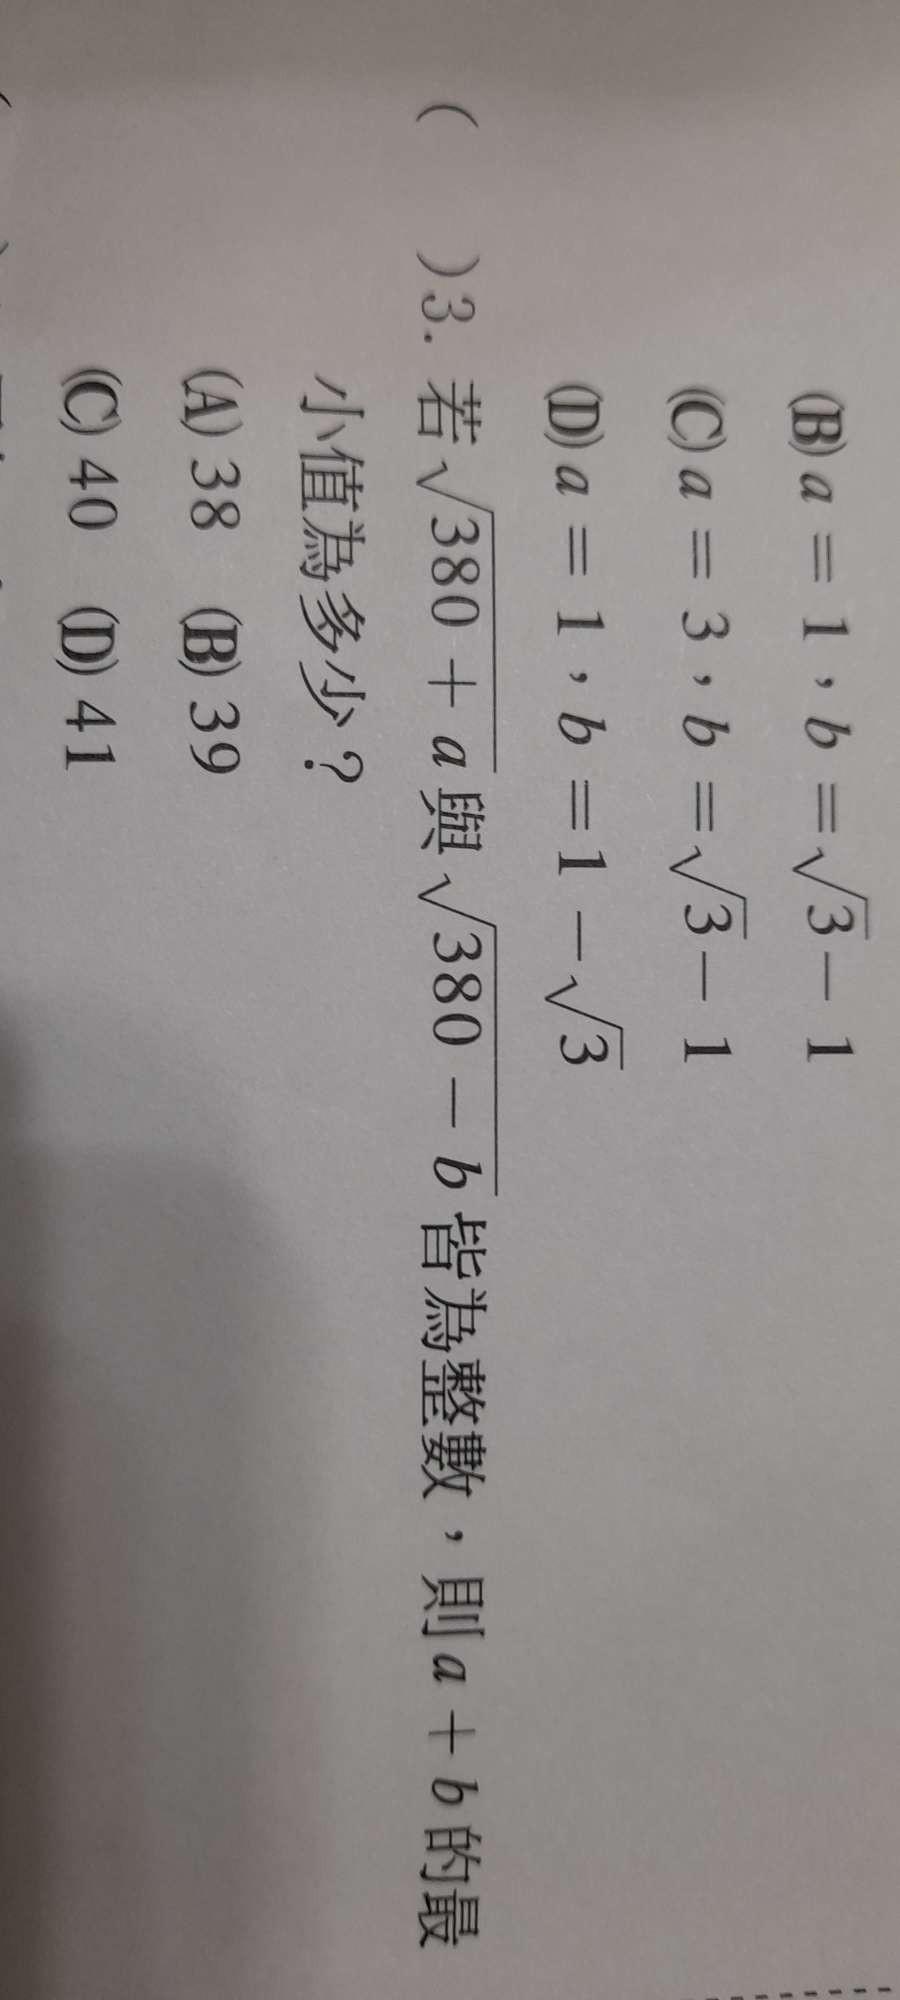 (B) a = 1，b = √3 − 1
(C) a = 3，b = √3 − 1
(D) a = 1，b = 1 − √3
( )3. 若√(380 + a)與√(380 − b)皆為整數，則a + b的最
小值為多少？
(A) 38 (B) 39
(C) 40 (D) 41